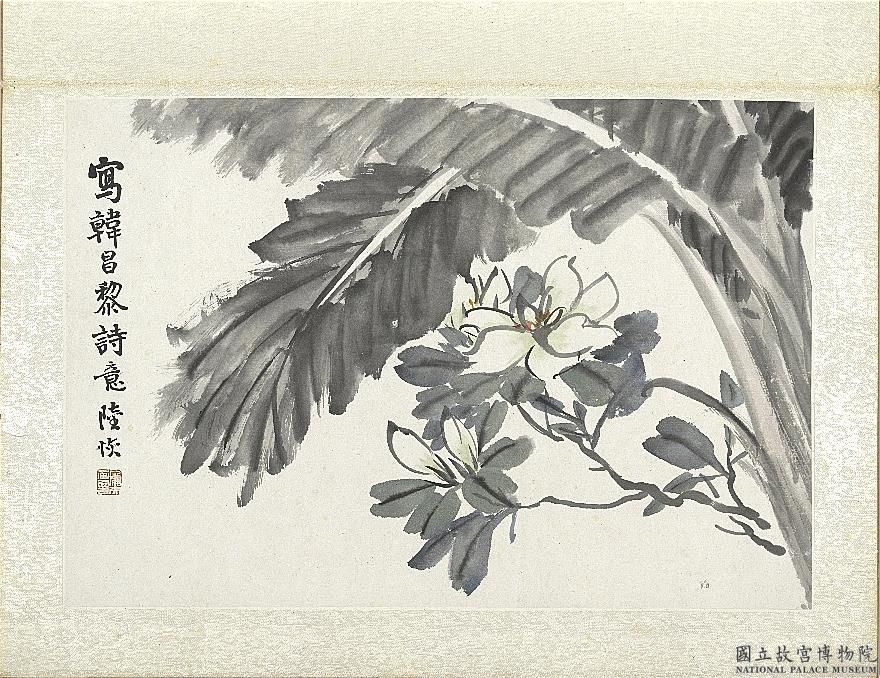 寫韓昌黎詩意 陸恢
國立故宮博物院
NATIONAL PALACE MUSEUM